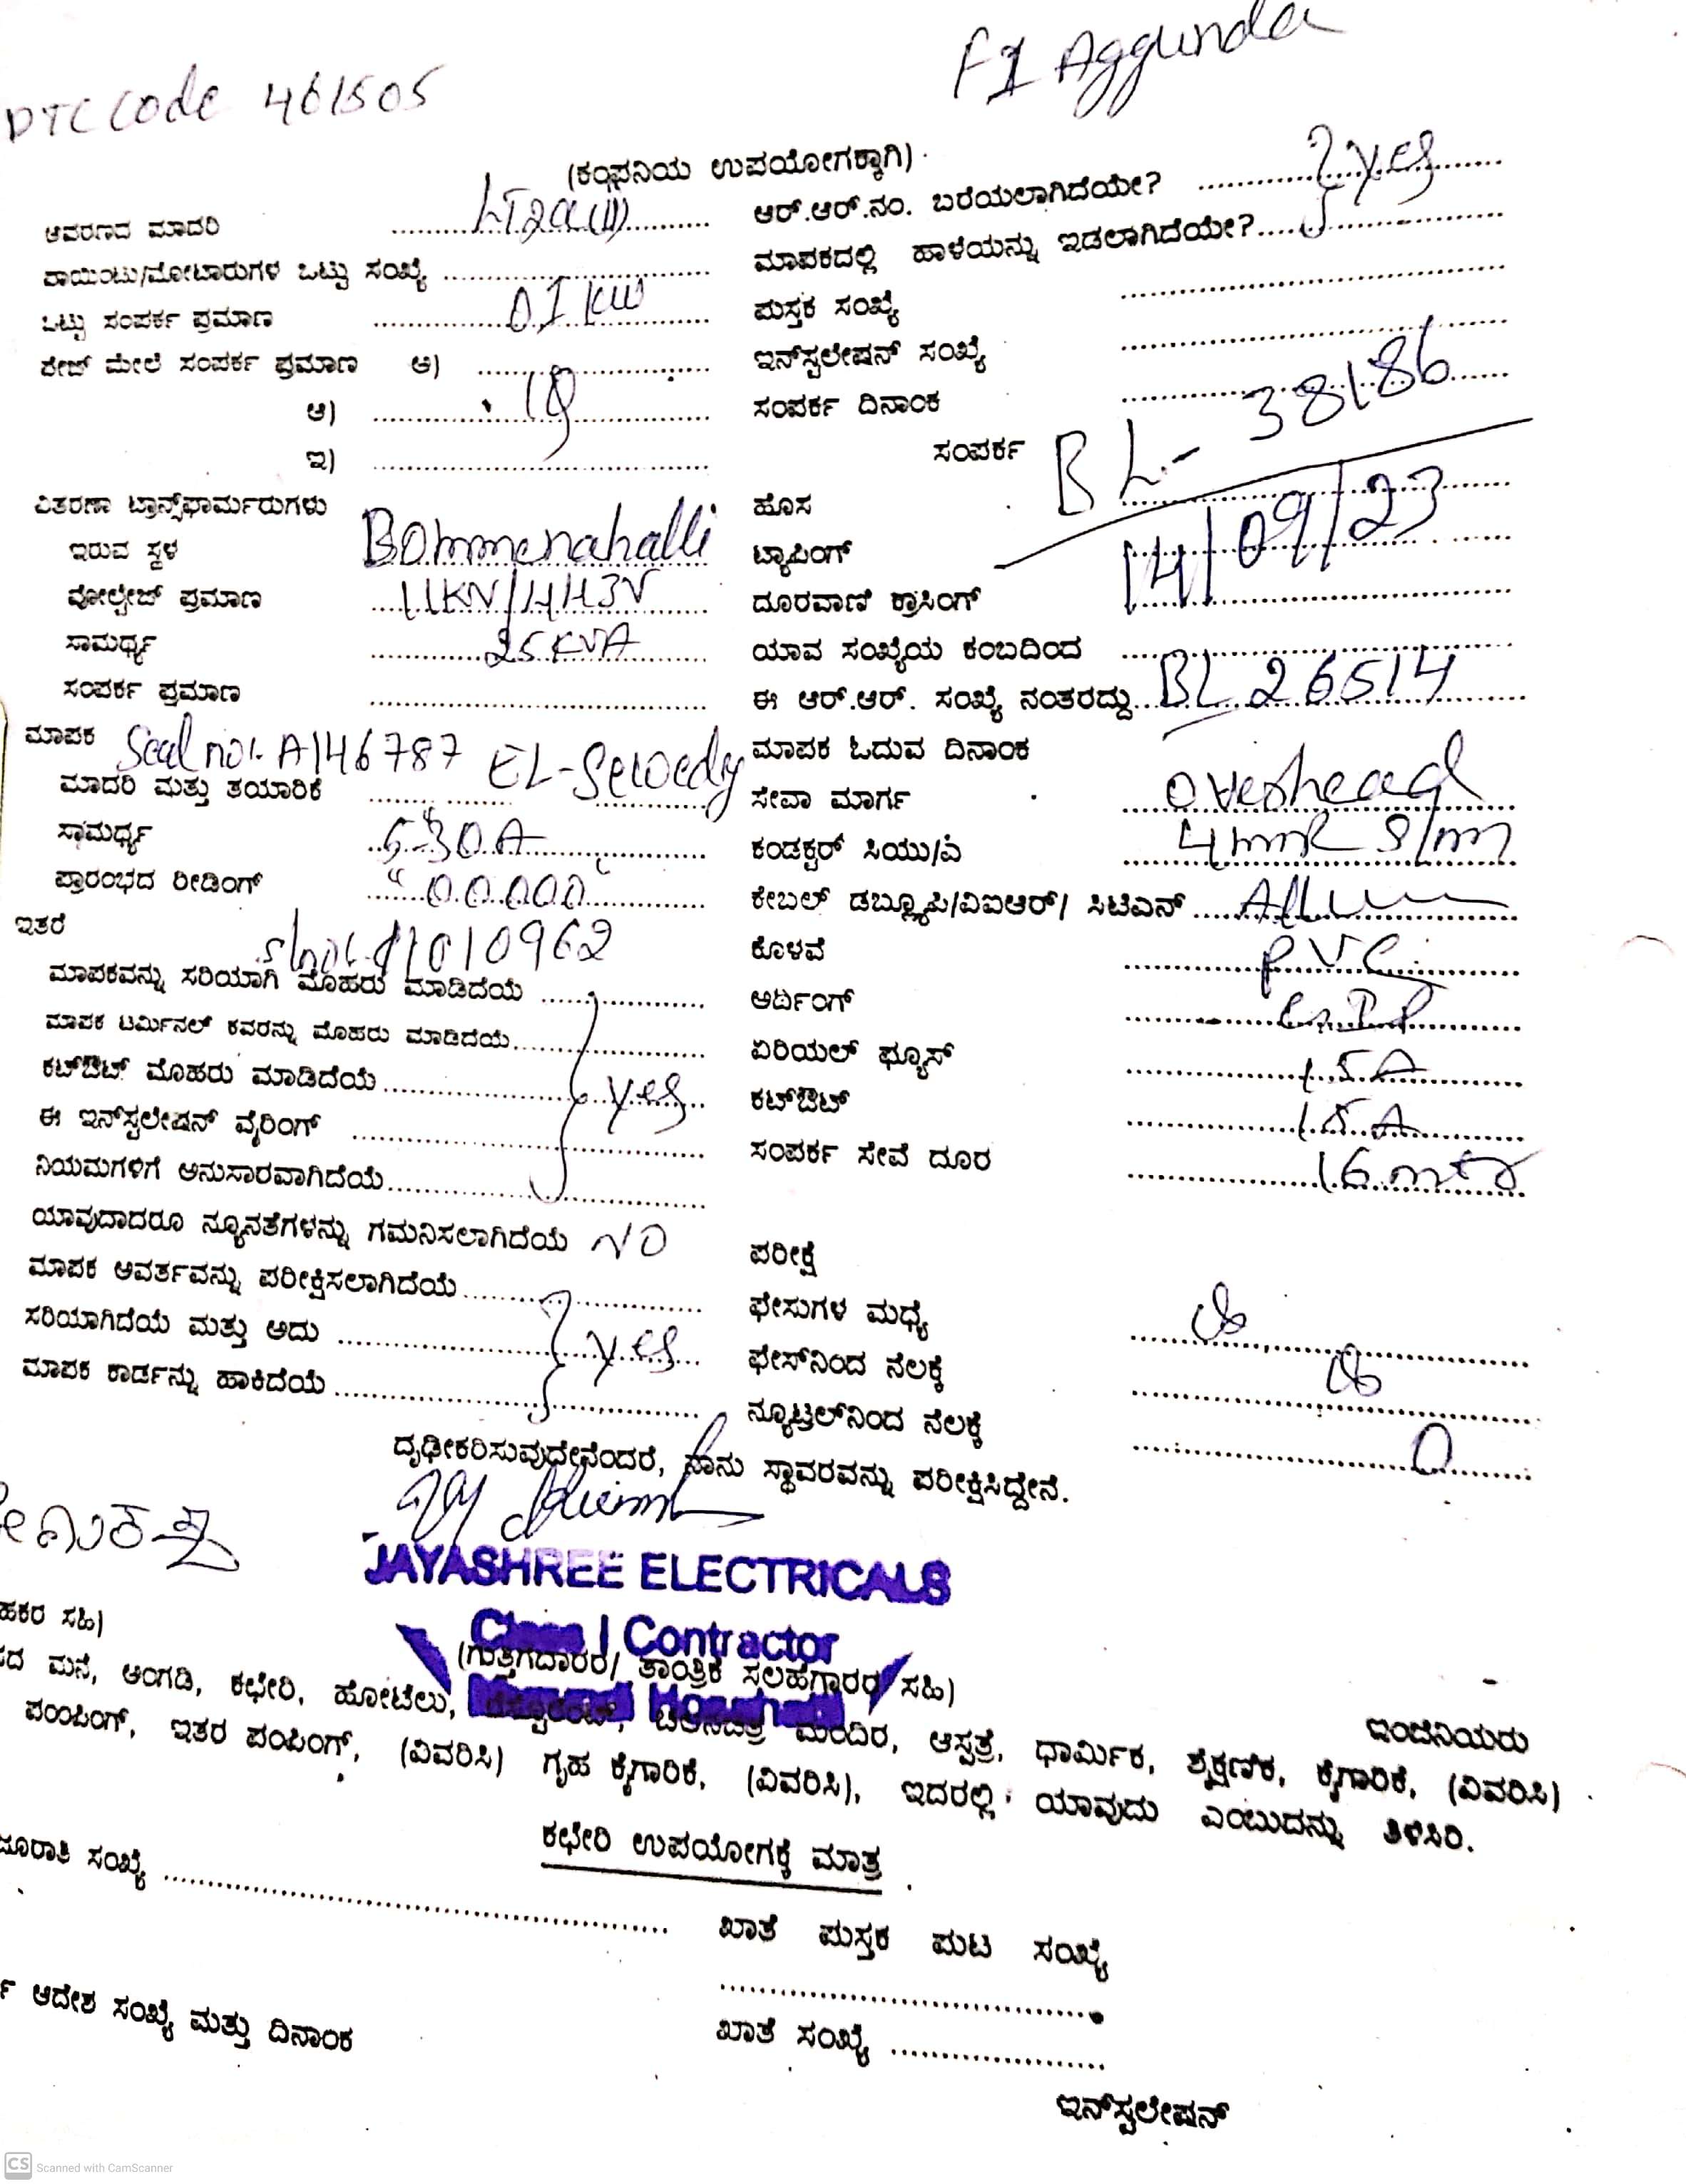 DTC Code 461505
F1 Aggunda
(ಕಂಪನಿಯ ಉಪಯೋಗಕ್ಕಾಗಿ)
ಆವರಣದ ಮಾದರಿ LT2a(II)
ಪಾಯಿಂಟು/ಮೋಟಾರುಗಳ ಒಟ್ಟು ಸಂಖ್ಯೆ
ಒಟ್ಟು ಸಂಪರ್ಕ ಪ್ರಮಾಣ 01 KW
ಫೇಜ್ ಮೇಲೆ ಸಂಪರ್ಕ ಪ್ರಮಾಣ ಅ)
ಆ) 1φ
ಇ)
ವಿತರಣಾ ಟ್ರಾನ್ಸ್‌ಫಾರ್ಮರುಗಳು
ಇರುವ ಸ್ಥಳ Bommenahalli
ವೋಲ್ಟೇಜ್ ಪ್ರಮಾಣ 11KV/443V
ಸಾಮರ್ಥ್ಯ 25 KVA
ಸಂಪರ್ಕ ಪ್ರಮಾಣ
ಮಾಪಕ Seal no:- A146787
ಮಾದರಿ ಮತ್ತು ತಯಾರಿಕೆ EL-Sewedy
ಸಾಮರ್ಥ್ಯ 5-30A
ಪ್ರಾರಂಭದ ರೀಡಿಂಗ್ "00000"
ಇತರೆ
ಮಾಪಕವನ್ನು ಸರಿಯಾಗಿ ಮೊಹರು ಮಾಡಿದೆಯೆ
ಮಾಪಕ ಟರ್ಮಿನಲ್ ಕವರನ್ನು ಮೊಹರು ಮಾಡಿದೆಯೆ
ಕಟ್‌ಔಟ್ ಮೊಹರು ಮಾಡಿದೆಯೆ yes
ಈ ಇನ್‌ಸ್ಟಲೇಷನ್ ವೈರಿಂಗ್
ನಿಯಮಗಳಿಗೆ ಅನುಸಾರವಾಗಿದೆಯೆ
ಯಾವುದಾದರೂ ನ್ಯೂನತೆಗಳನ್ನು ಗಮನಿಸಲಾಗಿದೆಯೆ NO
ಮಾಪಕ ಆವರ್ತವನ್ನು ಪರೀಕ್ಷಿಸಲಾಗಿದೆಯೆ
ಸರಿಯಾಗಿದೆಯೆ ಮತ್ತು ಅದು yes
ಮಾಪಕ ಕಾರ್ಡನ್ನು ಹಾಕಿದೆಯೆ
ಆರ್.ಆರ್.ನಂ. ಬರೆಯಲಾಗಿದೆಯೇ? yes
ಮಾಪಕದಲ್ಲಿ ಹಾಳೆಯನ್ನು ಇಡಲಾಗಿದೆಯೇ?
ಪುಸ್ತಕ ಸಂಖ್ಯೆ
ಇನ್‌ಸ್ಟಲೇಷನ್ ಸಂಖ್ಯೆ
ಸಂಪರ್ಕ ದಿನಾಂಕ
ಸಂಪರ್ಕ BL- 38186
ಹೊಸ
ಟ್ಯಾಪಿಂಗ್ 14/09/23
ದೂರವಾಣಿ ಕ್ರಾಸಿಂಗ್
ಯಾವ ಸಂಖ್ಯೆಯ ಕಂಬದಿಂದ
ಈ ಆರ್.ಆರ್. ಸಂಖ್ಯೆ ನಂತರದ್ದು BL 26514
ಮಾಪಕ ಓದುವ ದಿನಾಂಕ
ಸೇವಾ ಮಾರ್ಗ overhead
ಕಂಡಕ್ಟರ್ ಸಿಯು/ಎ
ಕೇಬಲ್ ಡಬ್ಲ್ಯೂಪಿ/ವಿಐಆರ್/ ಸಿಟಿಎನ್
ಕೊಳವೆ PVC
ಅರ್ಥಿಂಗ್
ಏರಿಯಲ್ ಫ್ಯೂಸ್ 15A
ಕಟ್‌ಔಟ್ 15A
ಸಂಪರ್ಕ ಸೇವೆ ದೂರ 16 mtr
ಪರೀಕ್ಷೆ
ಫೇಸುಗಳ ಮಧ್ಯೆ
ಫೇಸ್‌ನಿಂದ ನೆಲಕ್ಕೆ
ನ್ಯೂಟ್ರಲ್‌ನಿಂದ ನೆಲಕ್ಕೆ 0
ದೃಢೀಕರಿಸುವುದೇನೆಂದರೆ, ನಾನು ಸ್ಥಾವರವನ್ನು ಪರೀಕ್ಷಿಸಿದ್ದೇನೆ.
JAYASHREE ELECTRICALS
Class I Contractor
ಹಕರ ಸಹಿ)
(ಗುತ್ತಿಗೆದಾರರ/ ತಾಂತ್ರಿಕ ಸಲಹೆಗಾರರ ಸಹಿ)
ಇಂಜಿನಿಯರು
ದ ಮನೆ, ಅಂಗಡಿ, ಕಛೇರಿ, ಹೋಟೆಲು, ಮಂದಿರ, ಆಸ್ಪತ್ರೆ, ಧಾರ್ಮಿಕ, ಶೈಕ್ಷಣಿಕ, ಕೈಗಾರಿಕೆ, (ವಿವರಿಸಿ)
ಪಂಪಿಂಗ್, ಇತರ ಪಂಪಿಂಗ್, (ವಿವರಿಸಿ) ಗೃಹ ಕೈಗಾರಿಕೆ, (ವಿವರಿಸಿ), ಇದರಲ್ಲಿ ಯಾವುದು ಎಂಬುದನ್ನು ತಿಳಿಸಿರಿ.
ಕಛೇರಿ ಉಪಯೋಗಕ್ಕೆ ಮಾತ್ರ
ಜೂರಾತಿ ಸಂಖ್ಯೆ
ಖಾತೆ ಪುಸ್ತಕ ಪುಟ ಸಂಖ್ಯೆ
ಆದೇಶ ಸಂಖ್ಯೆ ಮತ್ತು ದಿನಾಂಕ
ಖಾತೆ ಸಂಖ್ಯೆ
ಇನ್‌ಸ್ಟಲೇಷನ್
CS Scanned with CamScanner